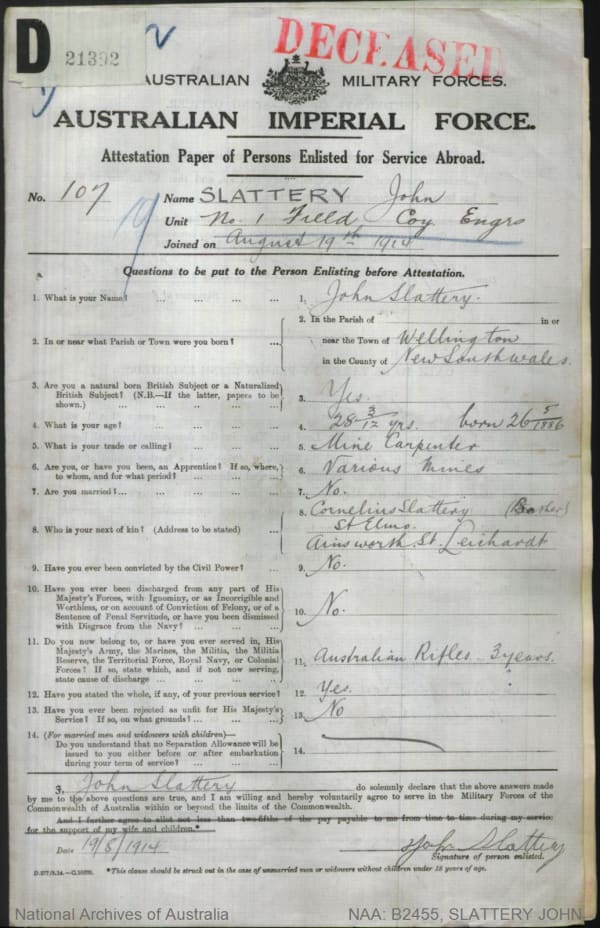 D 21392
DECEASED
AUSTRALIAN MILITARY FORCES.
AUSTRALIAN IMPERIAL FORCE.
Attestation Paper of Persons Enlisted for Service Abroad.
No. 107 Name SLATTERY John
Unit No. 1 Field Coy Engrs
Joined on August 19th 1914
Questions to be put to the Person Enlisting before Attestation.
1. What is your Name? ... ... ... ... 1. John Slattery.
2. In or near what Parish or Town were you born? ... 2. In the Parish of in or
near the Town of Wellington
in the County of New South Wales
3. Are you a natural born British Subject or a Naturalized
British Subject? (N.B.—If the latter, papers to be
shown.) ... ... ... ... 3. Yes
4. What is your age? ... ... ... ... 4. 28 3/12 yrs. born 26/5/1886
5. What is your trade or calling? ... ... ... 5. Mine Carpenter
6. Are you, or have you been, an Apprentice? If so, where,
to whom, and for what period? ... ... ... 6. Various Mines
7. Are you married? ... ... ... ... 7. No.
8. Who is your next of kin? (Address to be stated) ... 8. Cornelius Slattery
St Elmo.
Ainsworth St. Leichardt
9. Have you ever been convicted by the Civil Power? ... 9. No.
10. Have you ever been discharged from any part of His
Majesty's Forces, with Ignominy, or as Incorrigible and
Worthless, or on account of Conviction of Felony, or of a
Sentence of Penal Servitude, or have you been dismissed
with Disgrace from the Navy? ... ... ... 10. No.
11. Do you now belong to, or have you ever served in, His
Majesty's Army, the Marines, the Militia, the Militia
Reserve, the Territorial Force, Royal Navy, or Colonial
Forces? If so, state which, and if not now serving,
state cause of discharge ... ... ... 11. Australian Rifles 3 years.
12. Have you stated the whole, if any, of your previous service? 12. Yes.
13. Have you ever been rejected as unfit for His Majesty's
Service? If so, on what grounds? ... ... ... 13. No
14. (For married men and widowers with children)—
Do you understand that no Separation Allowance will be
issued to you either before or after embarkation
during your term of service? ... ... ... 14.
John Slattery do solemnly declare that the above answers made
by me to the above questions are true, and I am willing and hereby voluntarily agree to serve in the Military Forces of the
Commonwealth of Australia within or beyond the limits of the Commonwealth.
And I further agree to allot not less than two-fifths of the pay payable to me from time to time during my service
for the support of my wife and children.*
Date 19/8/1914 John Slattery
Signature of person enlisted.
*This clause should be struck out in the case of unmarried men or widowers without children under 18 years of age.
National Archives of Australia NAA: B2455, SLATTERY JOHN